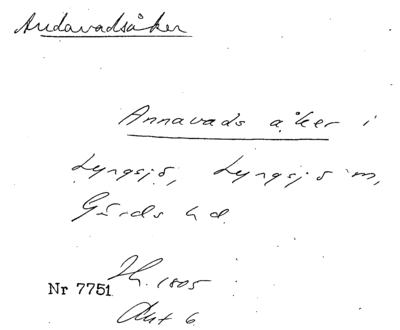 Andavadsåker
Annavads åker i
Lyngsjö, Lyngsjö sn,
Gärds hd.
Nr 7751
Sk. 1805
Akt 6